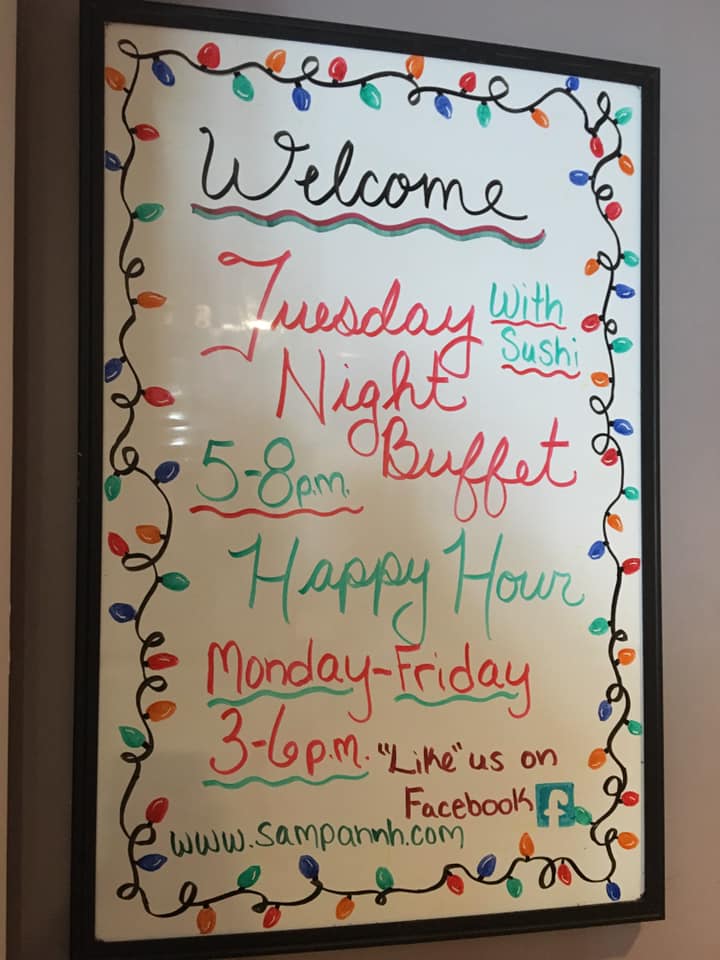 Welcome
Tuesday With
Sushi
Night
Buffet
5-8p.m.
Happy Hour
Monday-Friday
3-6p.m. "Like" us on
Facebook f
www.sampannh.com